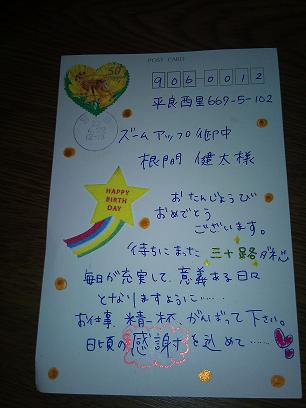 50
POST CARD
906-0012
平良西里 667-5-102
ズームアップ
根間 健太様
HAPPY
BIRTH
DAY
おたんじょうび
おめでとう
ございます。
待ちにまった 三十路
毎日が充実して、意義ある日々
となりますように……
お仕事、精一杯、がんばって下さい。
日頃の感謝を込めて……